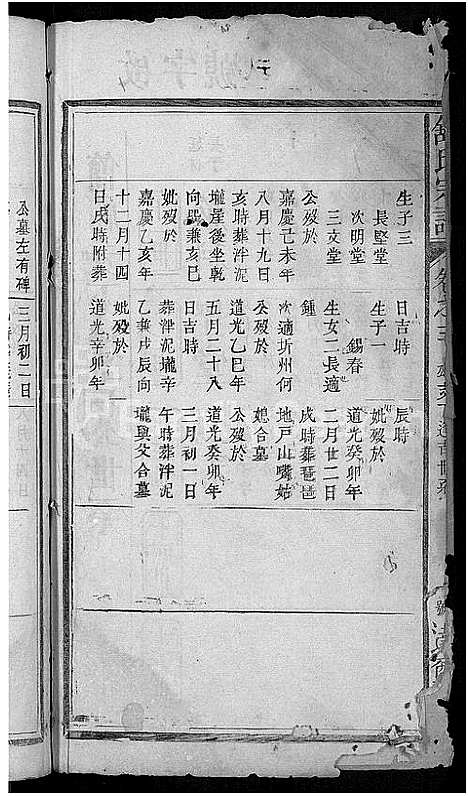 舒氏宗譜
卷之三
生子三
長堅堂
次明堂
三支堂
公歿於
嘉慶己未年
八月十九日
亥時葬泮泥
壠崖後坐乾
向巽兼亥巳
妣歿於
嘉慶乙亥年
十二月十四
日戌時附葬
公墓左有碑
日吉時
生子一
錫春
生女二長適
鍾
次適圻州何
道光乙巳年
五月二十八
日吉時
葬泮泥壠辛
乙兼戌辰向
妣歿於
道光辛卯年
三月初二日
辰時
妣歿於
道光癸卯年
二月廿二日
戌時葬琵琶
地戸山嘴姑
媳合墓
公歿於
道光癸卯年
三月初一日
午時葬泮泥
壠與父合墓